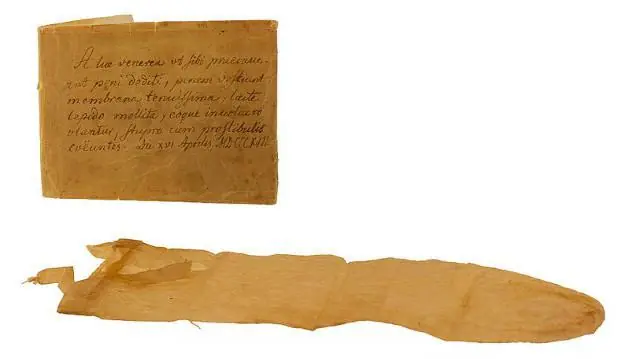 A lue venerea vt sibi praecaue-
ant peni dediti, penem vestiunt
membrana tenuissima, lacte
tepido mollita, eoque inuolucro
stupro cum prostibulis
coëuntes. Die XVI Aprilis, MDCCCXIII.